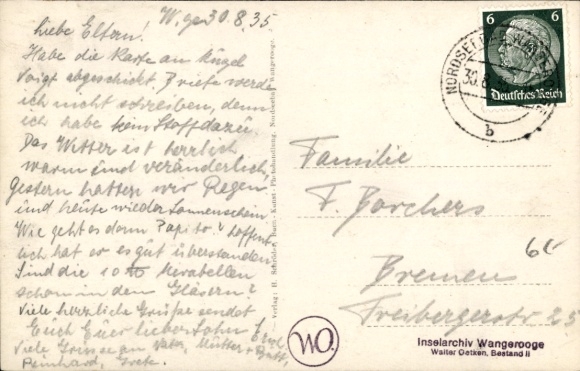 W. ge 30.8.35
Liebe Eltern!
Habe die Karte an
Voigt abgeschickt. Briefe werde
ich nicht schreiben, denn
ich habe kein Stoff dazu.
Das Wetter ist herrlich
warm und veränderlich,
Gestern hatten wir Regen
und heute wieder Sonnenschein
Wie geht es denn Papi ? hoffent-
lich hat er es gut überstanden
Sind die 10 Mirabellen
schon in den Gläsern?
Viele herzliche Grüsse sendet
Euch Euer lieber Sohn
Viele Grüsse an Vater, Mutter +
Reinhard, Grete.
Verlag: H. Buch-, Kunst- Nordseebad Wangerooge.
6 6
Deutsches Reich
NORDSEEBAD WANGEROOGE
30.8.
b
Familie
F. Borchers
Bremen
Freibergerstr 25
6.-
WO.
Inselarchiv Wangerooge
Walter Oetken, Bestand II